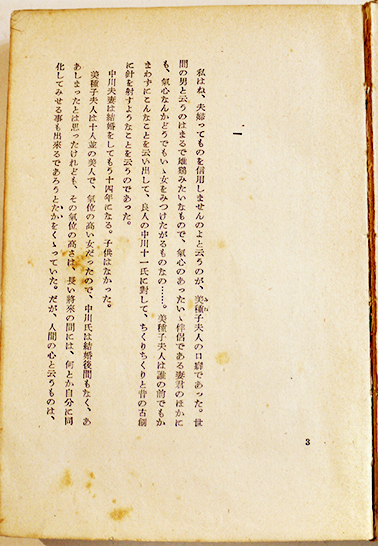 一
私はね、夫婦つてものを信用しませんのよと云うのが、美種子夫人の口癖であつた。世
間の男と云うのはまるで雄鶏みたいなもので、氣心のあつたいゝ伴侶である妻君のほかに
も、氣心なんかどうでもいゝ女をみつけたがるものなの……。美種子夫人は誰の前でもか
まわずにこんなことを云い出して、良人の中川十一氏に對して、ちくりちくりと昔の古創
に針を射すようなことを云うのであつた。
中川夫妻は結婚をしてもう十四年になる。子供はなかつた。
美種子夫人は十人並の美人で、氣位の高い女だつたので、中川氏は結婚後間もなく、あ
あしまつたとは思つたけれども、その氣位の高さは、長い將來の間には、何とか自分に同
化してみせる事も出來るであろうとたかをくゝつていた。だが、人間の心と云うものは、
3